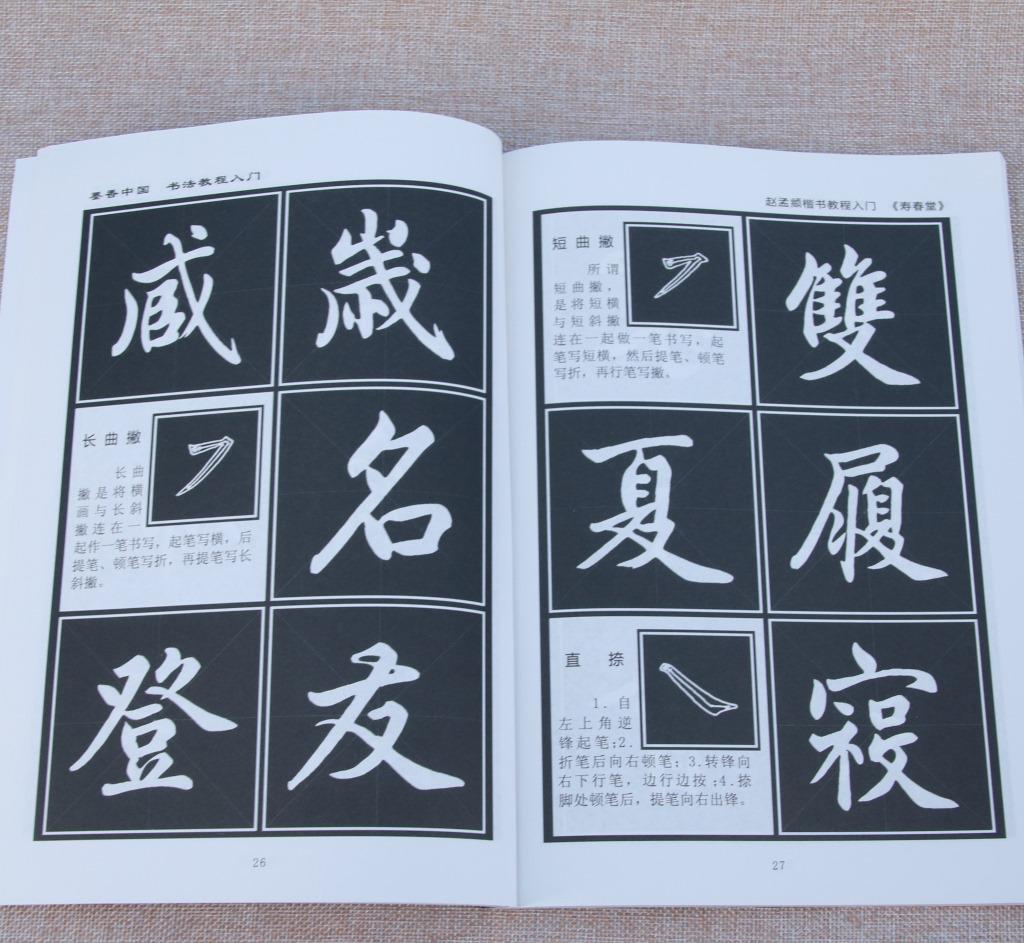 墨香中国 书法教程入门
歳
长曲撇
长曲
撇是将横
画与长斜
撇连在一
起作一笔书写，起笔写横，后
提笔、顿笔写折，再提笔写长
斜撇。
名
登 友
26
赵孟頫楷书教程入门 《寿春堂》
短曲撇
所谓
短曲撇，
是将短横
与短斜撇
连在一起做一笔书写，起
笔写短横，然后提笔、顿笔
写折，再行笔写撇。
雙
夏 履
直 捺
1.自
左上角逆
锋起笔;2.
折笔后向右顿笔；3.转锋向
右下行笔，边行边按;4.捺
脚处顿笔后，提笔向右出锋。
27